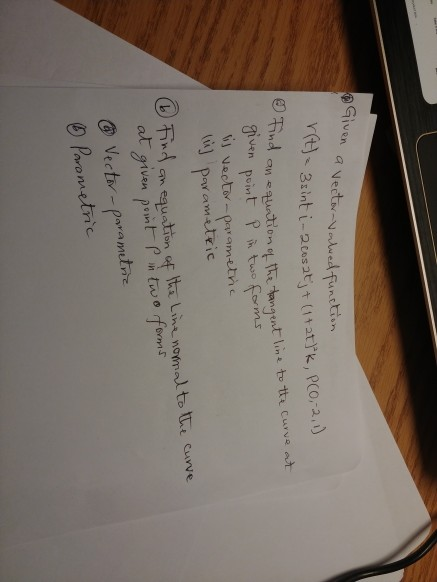 Given a vector-valued function
r(t) = 3sint i - 2cos2t j + (1+2t)²k, P(0,-2,1)
ⓐ Find an equation of the tangent line to the curve at
given point P in two forms
(i) vector-parametric
(ii) parametric
ⓑ Find an equation of the Line normal to the curve
at given point P in two forms
ⓐ Vector-parametric
ⓑ Parametric